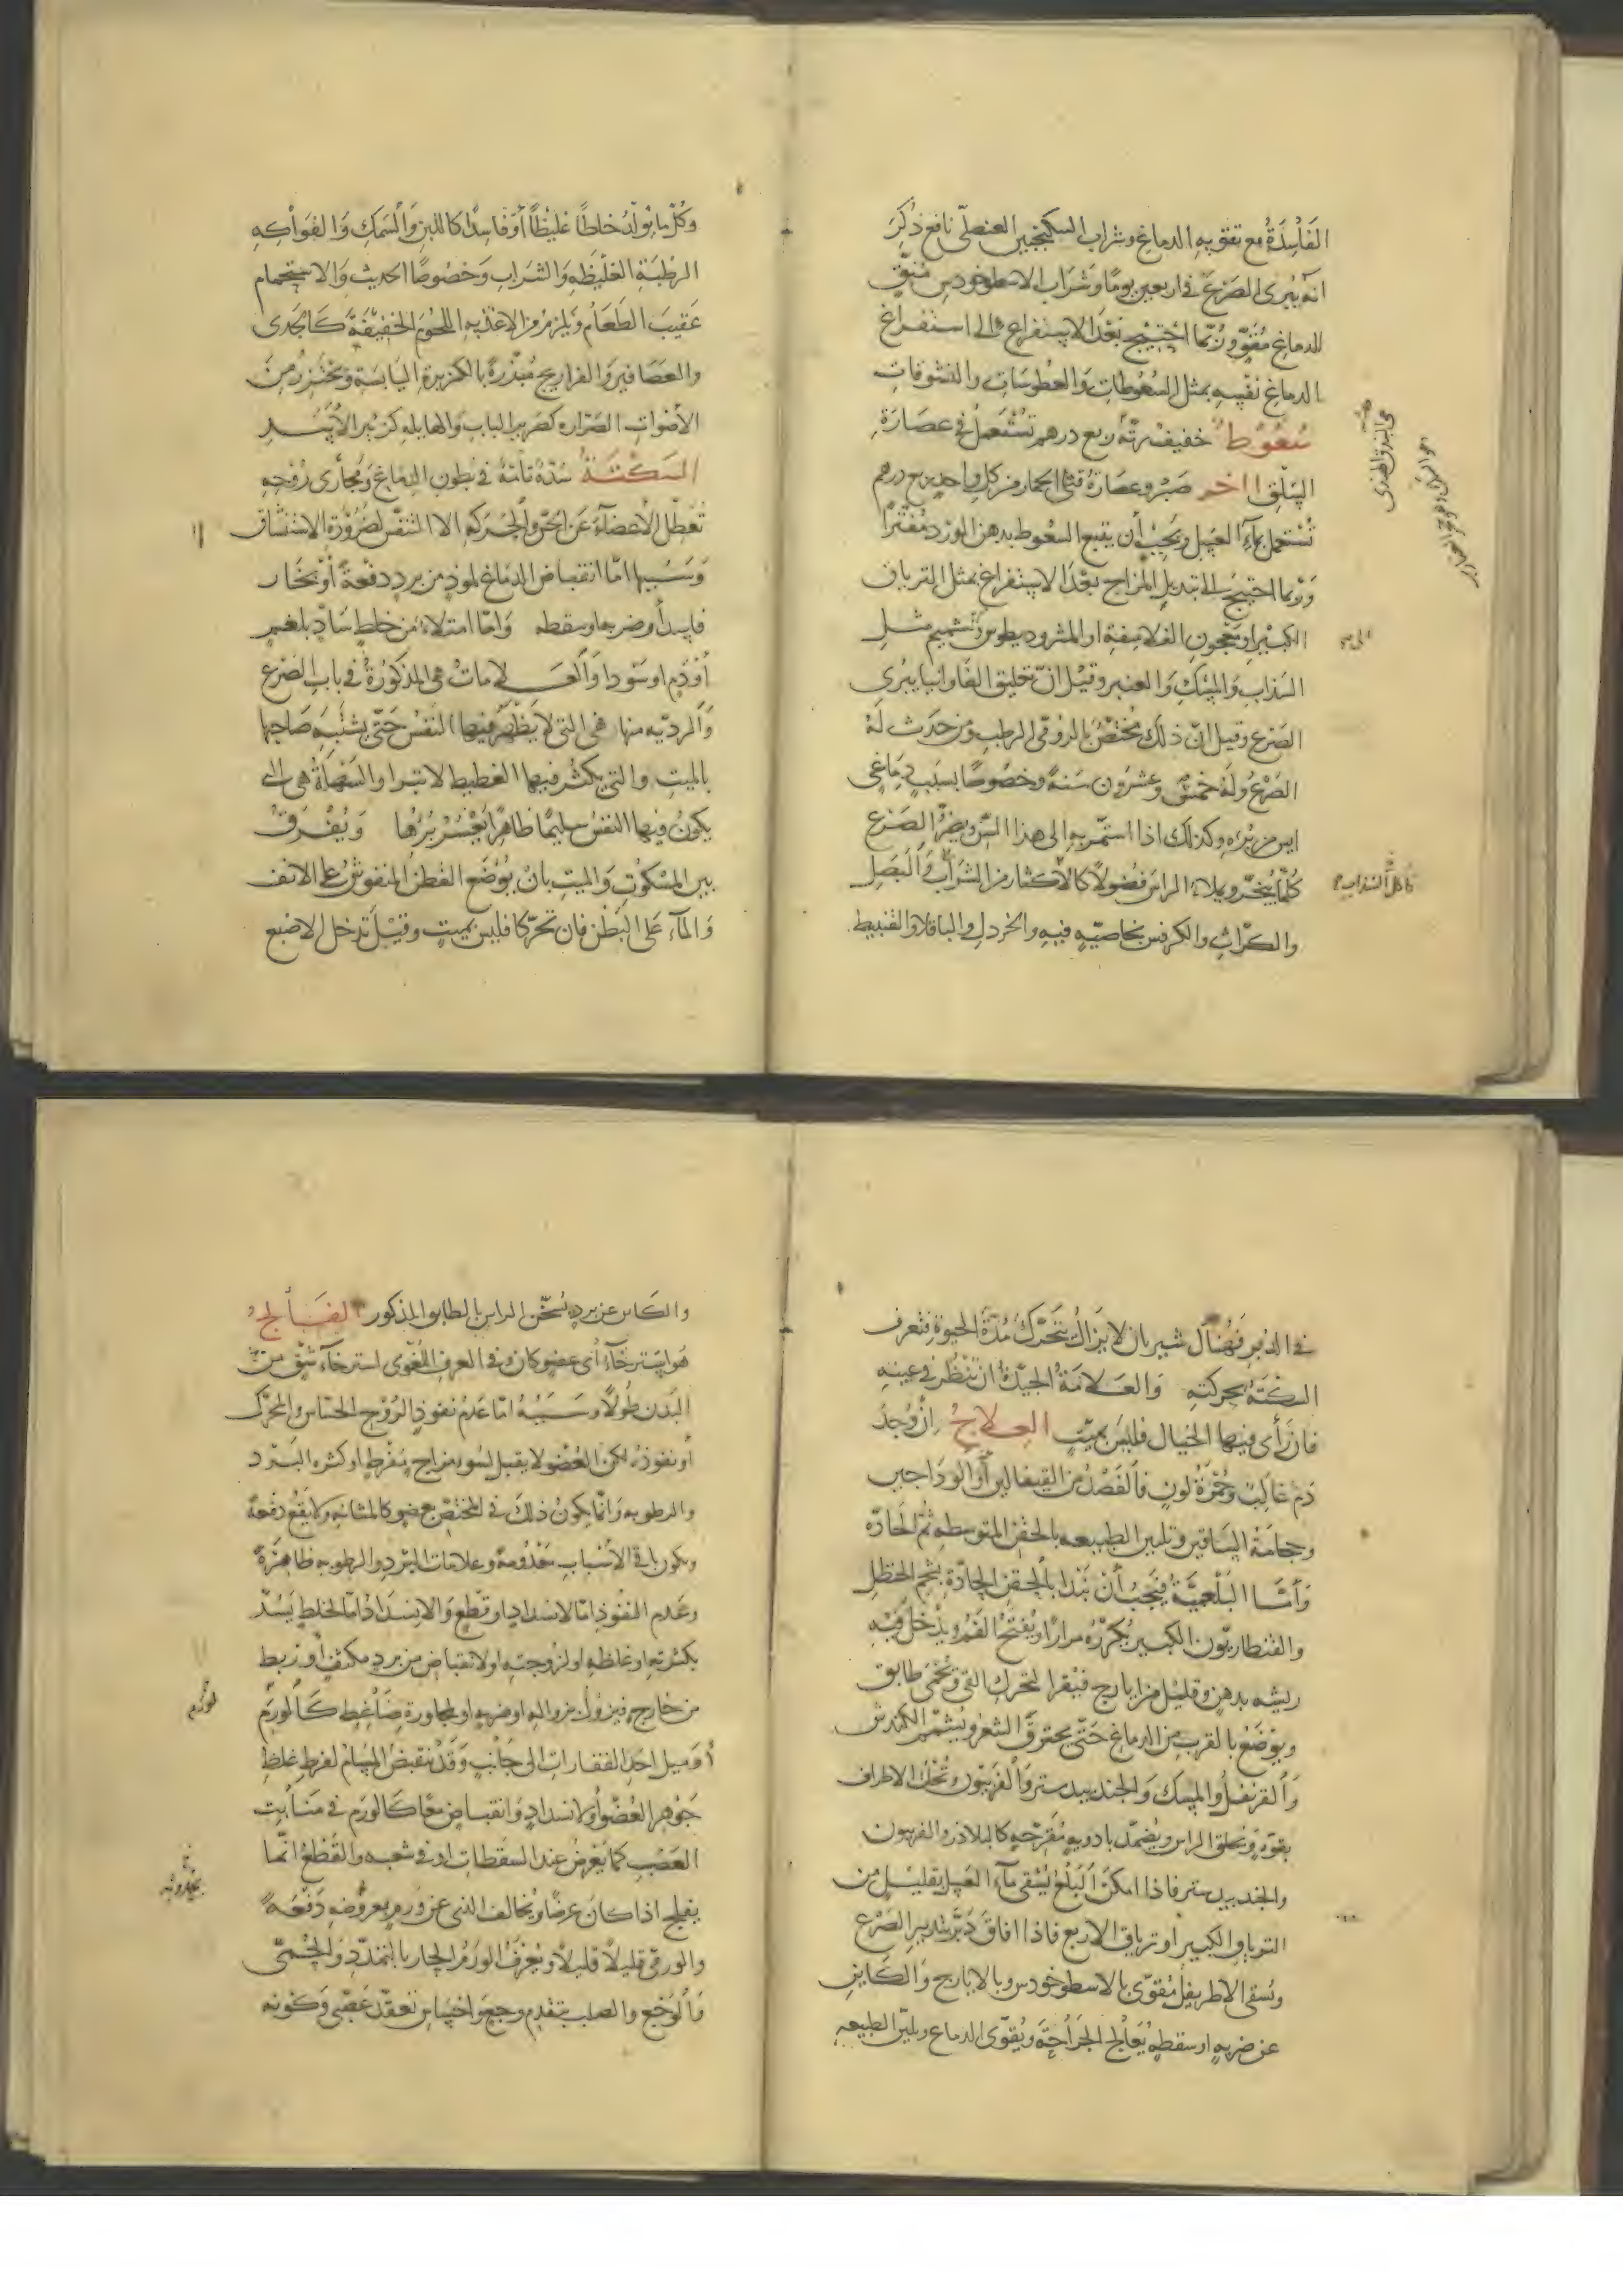 الفاسدة مع تقوية الدماغ وشراب السكنجبين العنصلي نافع ذكر
انه يبرئ الصرع في اربعين يوما وشراب الاسطوخودس منق
للدماغ مقو وربما احتيج بعد الاستفراغ الى استفراغ
الدماغ نفسه بمثل السعوطات والعطوسات والنشوقات
سعوط خفيف رتة ربع درهم تستعمل في عصارة
السلق اخر صبر وعصارة قثا الحمار من كل واحد ربع درهم
تستعمل بماء العسل ويجب أن يتبع السعوط بدهن الورد مفترا
وربما احتيج الى تبديل المزاج بعد الاستفراغ بمثل الترياق
الكبير او معجون الفلاسفة او المثروديطوس وتشميم مثل
السذاب والمسك والعنبر وقيل ان تعليق الفاوانيا يبرى
الصرع وقيل ان ذلك مختص بالروقى الرطب ومن حدث له
الصرع وله خمس وعشرون سنة وخصوصا بسبب دماغي
ايس من برءه وكذلك اذا استمر به الى هذا السن ويضر الصرع
كلما يبخر ويملاء الراس فضولا كالاكثار من الشراب والبصل
والكراث والكرفس بخاصية فيه والخردل والباقلا والقنبيط
هي البندق الهندي
فاكل السذاب
وكل ما يولد خلطا غليظا أو فاسدا كاللبن والسمك والفواكه
الرطبة الغليظه والشراب وخصوصا الحديث والاستحمام
عقيب الطعام ويلزم من الاغذية اللحوم الخفيفة كالجدى
والعصافير والفراريج مبزرة بالكزبرة اليابسة ويحترز من
الأصوات الصرارة كصرير الباب والهايلة كزئير الأسد
السكتة سدة تامة في بطون الدماغ ومجارى روحه
تعطل الأعضاء عن الحس والحركة الا التنفس لضرورة الاستنشاق
وسببها اما انقباض الدماغ لموذ من برد دفعة أو بخار
فاسد أو ضربة او سقطه واما امتلاء من خلط ساد بلغم
أو دم او سودا والعلامات هي المذكورة في باب الصرع
والردية منها هي التي لا يظهر فيها النفس حتى يشتبه صاحبها
بالميت والتي يكثر فيها الغطيط لا تبرا والسهلة هي التي
يكون فيها النفس سليما ظاهرا يعسر برؤها ويفرق
بين المسكوت والميت بان يوضع القطن المنفوش على الانف
والماء على البطن فان تحركا فليس بميت وقيل تدخل الاصبع
في الدبر فهناك شريان لا يزال يتحرك مدة الحيوة فتعرف
السكتة بحركته والعلامة الجيدة ان تنظر في عينه
فان رأى فيها الخيال فليس بميت العلاج ان وجد
دم غالب وحمرة لون فالفصد من القيفالين أو الوداجين
وحجامة الساقين وتليين الطبيعه بالحقن المتوسطه ثم الحادة
وأما البلغمية فيجب أن تبدا بالحقن الحادة بشحم الحنظل
والقنطاريون الكبير يكرره مرارا ويفتح الفم ويدخل فيه
ريشه بدهن وقليل من ايارج فيقرا لتحرك القئ وتحمى طابق
ويوضع بالقرب من الدماغ حتى يحترق الشعر ويشم الكندش
والقرنفل والمسك والجندبيدستر والفربيون وتدلك الاطراف
بقوة ويحلق الراس ويضمد بادوية مقرحه كالبلاذر والفربيون
والجندبيدستر فاذا امكن البلع يسقى ماء العسل بقليل من
الترياق الكبير او ترياق الاربع فاذا افاق دبر بتدبير الصرع
وتسقى الاطريفل مقوى بالاسطوخودس وبالايارج والكاين
عن ضربة او سقطه يعالج الجراحة ويقوى الدماغ ويلين الطبيعه
والكاين عن برد يسخن الراس بالطابق المذكور الفالج
هو استرخاء أي عضو كان وفي العرف اللغوى استرخاء شق من
البدن طولا وسببه اما عدم نفوذ الروح الحساس والمحرك
أو نفوذه لكن العضو لا يقبل لسوء مزاج مفرط او كثرة البرد
والرطوبه وانما يكون ذلك في المختص بعضو كالمثانه ولا يقع دفعة
ويكون باقي الأسباب معدومة وعلامات البرد والرطوبه ظاهرة
وعدم النفوذ اما لانسداد او قطع والانسداد اما لخلط يسد
بكثرته او غلظه او لزوجته او لانقباض من برد مكثف او ربط
من خارج فيزول بزواله او ضربه او لمجاورة ضاغط كالورم
أو ميل احد الفقارات الى جانب وقد تنقبض المسام لفرط غلظ
جوهر العضو أو لانسداد وانقباض معا كالورم في منابت
العصب كما يعرض عند السقطات او في شعبه والقطع انما
يفلج اذا كان عرضا ويخالف الذي عن ورم بعروضه دفعة
والورمي قليلا قليلا ويعرف الورم الحار بالتمدد والحمى
والوجع والصلب بتقدم وجع واحساس تعقد عصبى وكونه
لورم